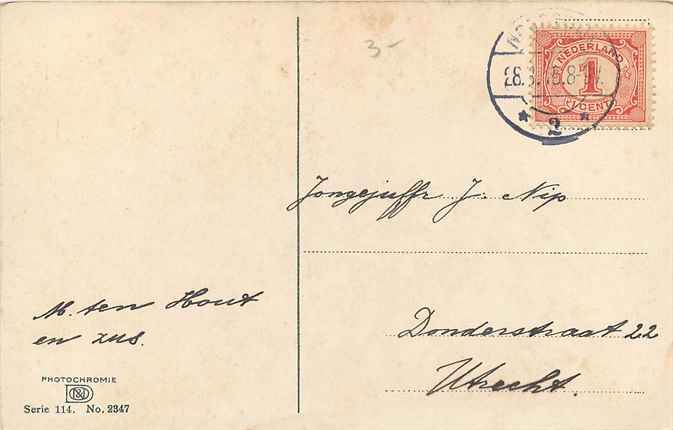 3-
NEDERLAND
1
CENT
2
Jongejuffr J. Nip
Donderstraat 22
Utrecht.
M. ten Hout
en zus.
PHOTOCHROMIE
Serie 114. No. 2347